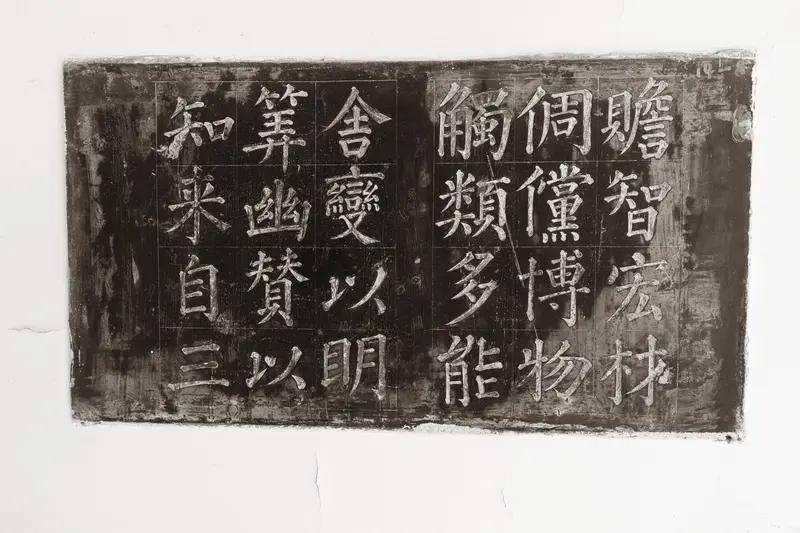 贍智宏材
倜儻博物
觸類多能
舍變以明
筭幽贊以
知来自三